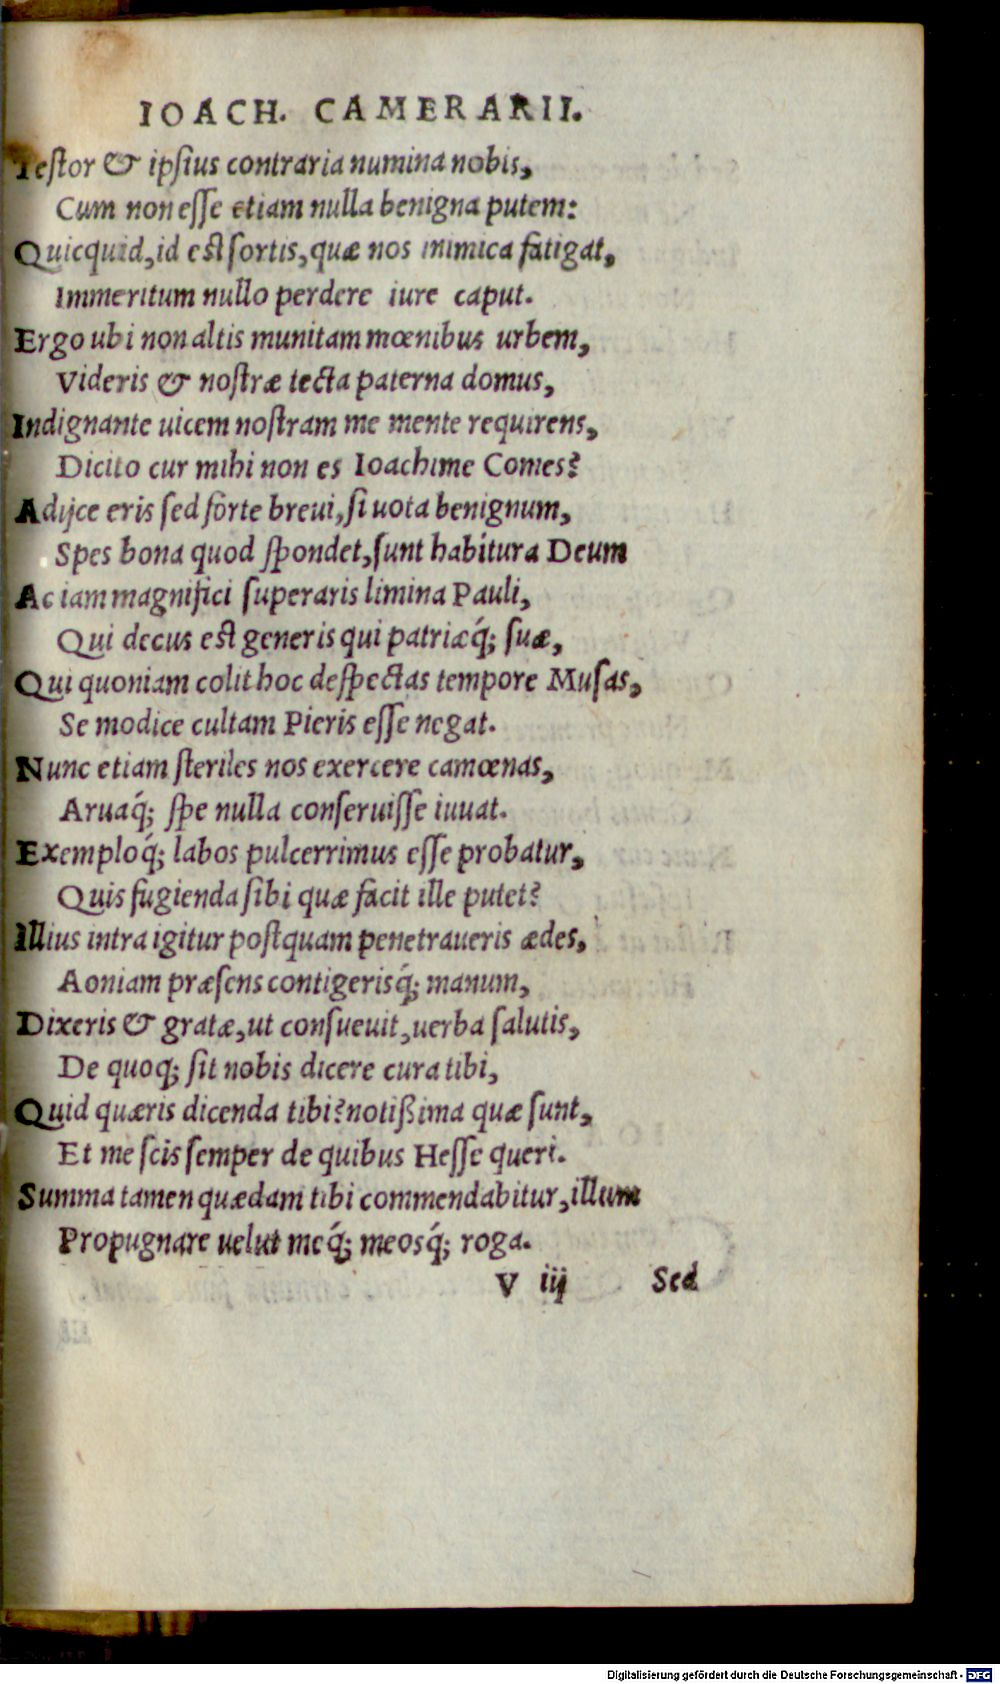 IOACH. CAMERARII.
Testor & ipsius contraria numina nobis,
Cum non esse etiam nulla benigna putem:
Quicquid, id est sortis, quæ nos inimica fatigat,
Immeritum nullo perdere iure caput.
Ergo ubi non altis munitam mœnibus urbem,
Videris & nostræ tecta paterna domus,
Indignante uicem nostram me mente requirens,
Dicito cur mihi non es Ioachime Comes?
Adijce eris sed forte breui, si uota benignum,
Spes bona quod spondet, sunt habitura Deum
Ac iam magnifici superaris limina Pauli,
Qui decus est generis qui patriæq́; suæ,
Qui quoniam colit hoc despectas tempore Musas,
Se modice cultam Pieris esse negat.
Nunc etiam steriles nos exercere camœnas,
Aruaq́; spe nulla conseruisse iuuat.
Exemploq́; labos pulcerrimus esse probatur,
Quis fugienda sibi quæ facit ille putet?
Illius intra igitur postquam penetraueris ædes,
Aoniam præsens contigerisq́; manum,
Dixeris & gratæ, ut consueuit, uerba salutis,
De quoq; sit nobis dicere cura tibi,
Quid quæris dicenda tibi? notißima quæ sunt,
Et me scis semper de quibus Hesse queri.
Summa tamen quædam tibi commendabitur, illum
Propugnare uelut meq́; meosq́; roga.
V iij Sed
Digitalisierung gefördert durch die Deutsche Forschungsgemeinschaft - DFG